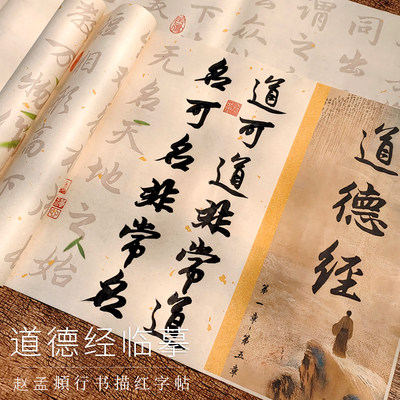 道德經
第一章-第五章
道可道非常道
名可名非常名
同出
谓之
名天地之始
万物
道德经临摹
赵孟頫行书描红字帖